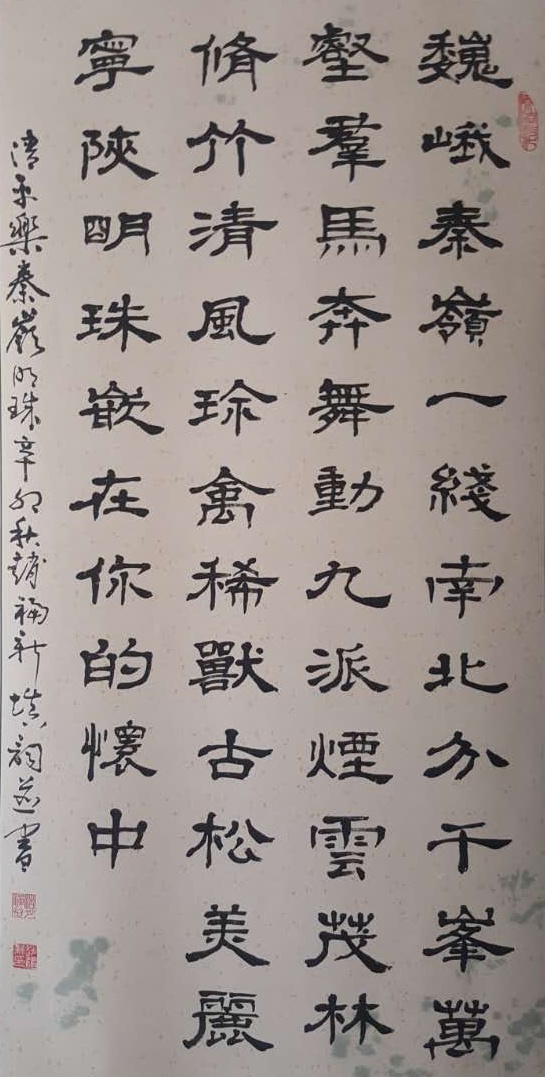 巍峨秦嶺一綫南北分千峯萬
壑羣馬奔舞動九派煙雲茂林
脩竹清風珍禽稀獸古松美麗
寧陝明珠嵌在你的懷中
清平樂秦嶺明珠辛卯秋薛福新填韵並書